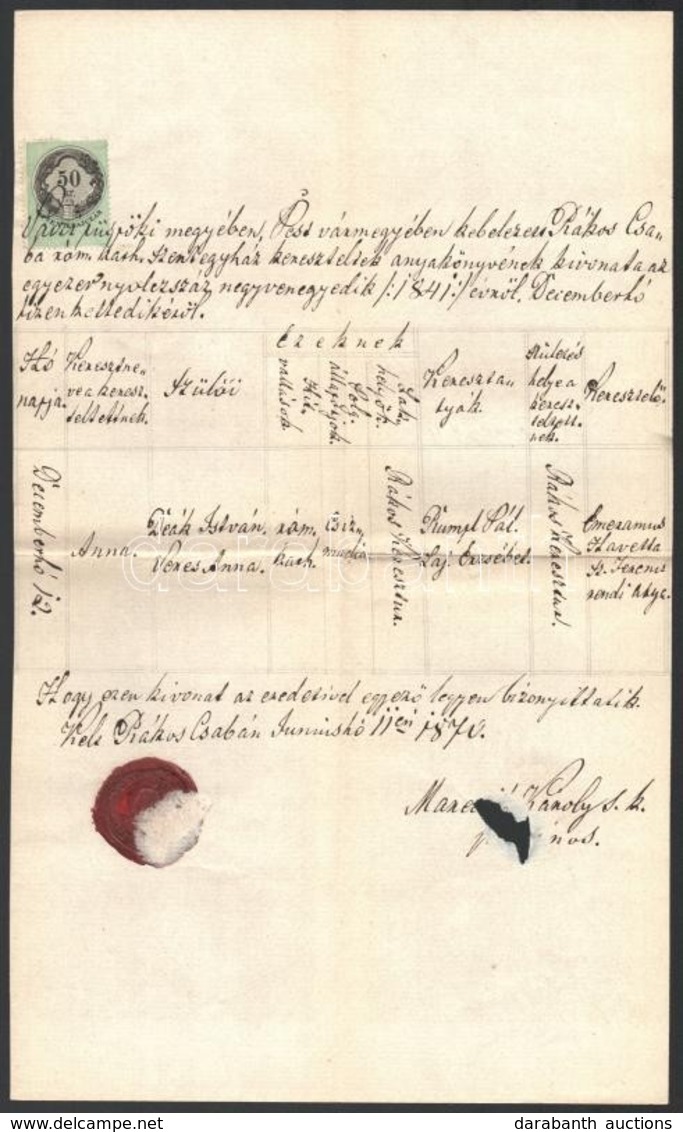 50
kr.
megyében, Pest vármegyében kebelezett Rákos Csa„
ba róm. kath. szentegyház kereszteltek anyakönyvének kivonata az
egyezer nyolczszáz negyvenegyedik /:1841:/ évről, Decemberhó
tizenkettedikéről.
Ezeknek
Hó
napja.
Keresztne„
ve a keresz„
teltettnek.
Szülői
Hit„
vallások
Pol.
állapotjok.
Lak„
helyök.
Kereszta„
tyák.
Születés
helye a
keresz„
teltett„
nek.
Keresztelő.
Decemberhó 12.
Anna.
Deák István.
Veres Anna.
róm.
kath.
Rákos Keresztur.
Rumpl Pál.
Laj. Erzsébet.
Rákos Keresztur.
Emeramus
Havetta
Sz. Ferencz
rendi Atya.
Hogy ezen kivonat az eredetivel egyező legyen bizonyittatik.
Kelt Rákos Csabán Juniushó 11én 1870.
Károly s. k.
darabanth
darabanth auctions